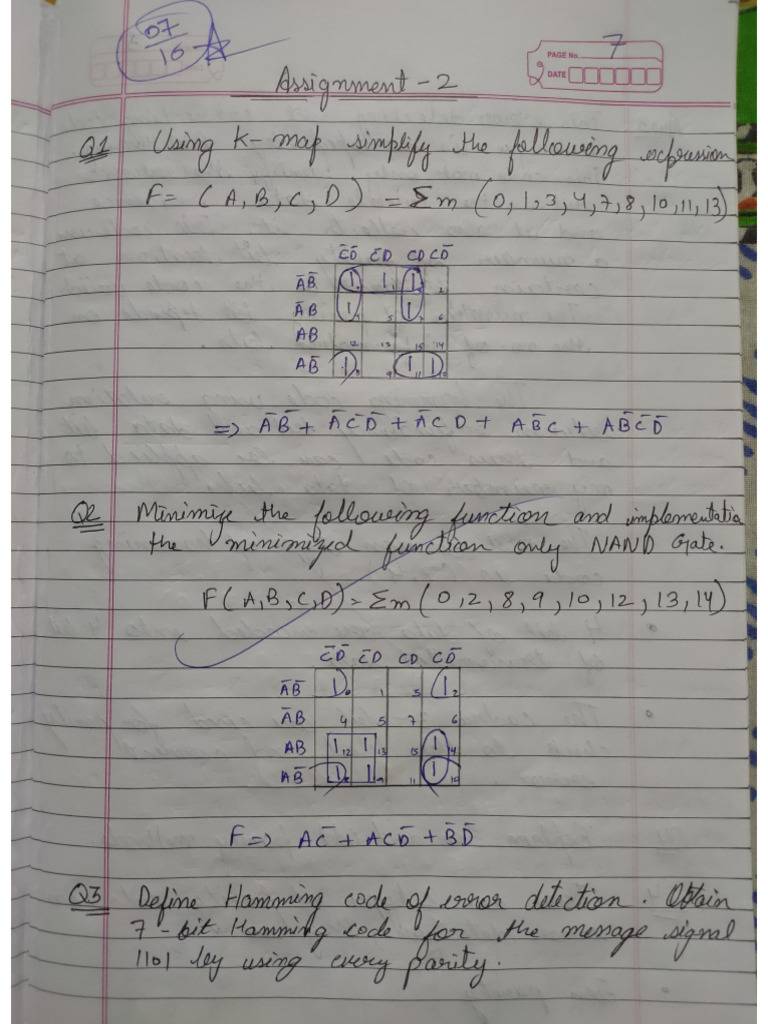 07
10
PAGE No. 7
DATE
Assignment - 2
Q1 Using K-map simplify the following expression
F = (A, B, C, D) = Σm (0, 1, 3, 4, 7, 8, 10, 11, 13)
C̄D̄ C̄D CD CD̄
ĀB̄ 1 0 1 1 1 3 2
ĀB 1 4 5 1 7 6
AB 12 13 15 14
AB̄ 1 8 9 1 11 1 10
=> ĀB̄ + ĀC̄D̄ + ĀCD + AB̄C + AB̄C̄D̄
Q2 Minimize the following function and implementatio
the minimized function only NAND Gate.
F(A,B,C,D) = Σm (0, 2, 8, 9, 10, 12, 13, 14)
C̄D̄ C̄D CD CD̄
ĀB̄ 1 0 1 3 1 2
ĀB 4 5 7 6
AB 1 12 1 13 15 1 14
AB̄ 1 8 1 9 11 1 10
F => AC̄ + ACD̄ + B̄D̄
Q3 Define Hamming code of error detection. Obtain
7-bit Hamming code for the message signal
1101 by using every parity.